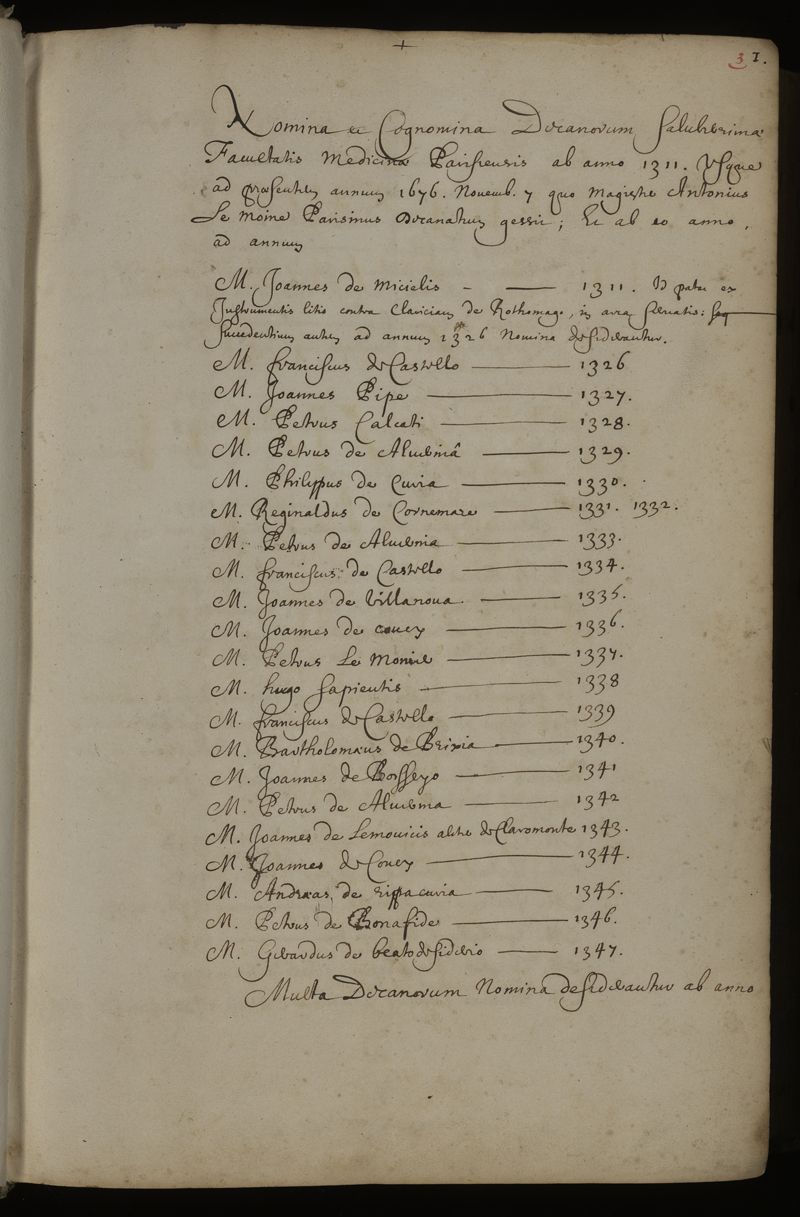 3 1.
Nomina et Cognomina Decanorum saluberrimæ
Facultatis Medicinæ Parisiensis ab anno 1311. Usque
ad præsentem annum 1676. Novemb. 7 quo Magister Antonius
Le Moine Parisinus Decanatum gessit; Et ab eo anno,
ad annum
M. Joannes de Micielis - — 1311. Id patet ex
Instrumentis litis contra Clariciam de Rothomago, in arca servatis:
succedentium autem ad annum 1326 Nomina desiderantur.
M. franciscus de Castello — 1326
M. Joannes Pipe — 1327.
M. Petrus Calcati — 1328.
M. Petrus de Alvernia — 1329.
M. Philippus de Curia — 1330.
M. Reginaldus de Cornemare — 1331. 1332.
M. Petrus de Alvernia — 1333.
M. franciscus de Castello — 1334.
M. Joannes de Villanova. — 1335.
M. Joannes de coucy — 1336.
M. Petrus Le Monie — 1337.
M. hugo sapientis — 1338
M. franciscus de Castello — 1339
M. Bartholomæus de Brixia — 1340.
M. Joannes de Bosseyo — 1341
M. Petrus de Alverna — 1342
M. Joannes de Lemovicis de Claromonte 1343.
M. Joannes de Coucy — 1344.
M. Andreas de rippacuria — 1345.
M. Petrus de Bonafide — 1346.
M. Gerardus de beatodesiderio — 1347.
Multa Decanorum Nomina desiderantur ab anno